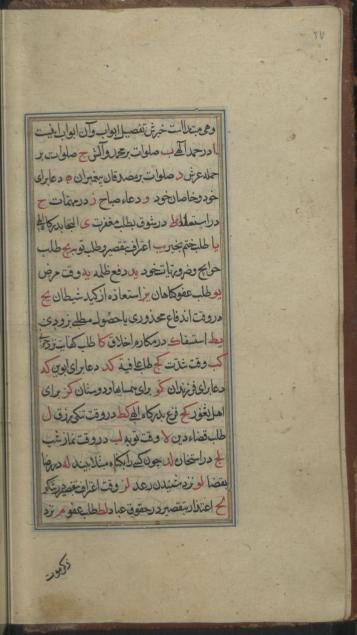 ۲۷
وهی مبتدا است خبرش تفصیل ابواب وآن ابواب اینست
ا در حمد الهی ب صلوات بر محمد وآلش ج صلوات بر
حمله عرش د صلوات بر مصدقان پیغمبران ه دعا برای
خود وخاصان خود و دعاء صباح ز در مهمات ح
در استعاذه ط در شوق بطلب مغفرت ی التجا بدرگاه الهی
یا طلب ختم بخیر یب اعتراف تقصیر وطلب توبه یج طلب
حوایج وضروریات خود ید دفع ظلمه یه وقت مرض
یو طلب عفو گناهان یز استعاذه از کید شیطان یح
در وقت اندفاع محذوری یا حصول مطلبی بزودی
یط استسقا ک در مکارم اخلاق کا طلب کفایت
کب وقت شدت کج طلب عافیة کد دعا برای ابوین که
دعا برای فرزندان کو برای همسایها ودوستان کز برای
اهل ثغور کح فزع بدرگاه الهی کط در وقت تنکی رزق ل
طلب قضاء دین لا وقت توبه لب در وقت نماز شب
لج در استخاره لد چون کسی را بگناه مبتلا بیند له در رضا
بقضا لو نزد شنیدن رعد لز وقت اعتراف تقصیر در شکر
لح اعتذار بتقصیر در حقوق عباد لط طلب عفو م نزد
ذکر موت